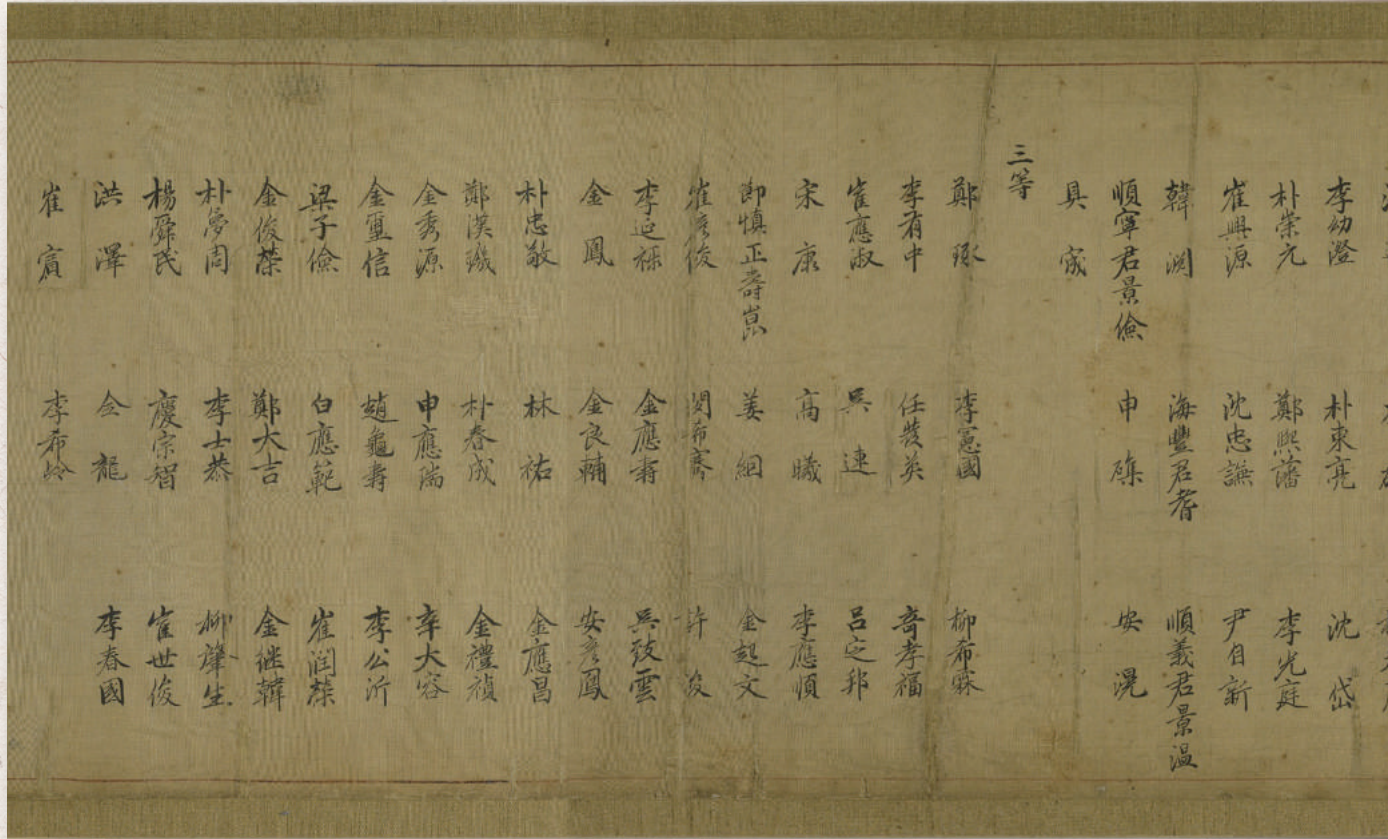 李幼澄 朴東亮 沈岱
朴崇元 鄭熙藩 李光庭
崔興源 沈忠謙 尹自新
韓淵 海豐君耆 順義君景温
順寧君景儉 申磼 安滉
具宬
三等
鄭琢 李憲國 柳希霖
李有中 任發英 奇孝福
崔應淑 吳連 呂定邦
宋康 高曦 李應順
即愼正壽崑 姜絪 金起文
崔彦俊 閔希騫 許浚
李延祿 金應壽 吳致雲
金鳳 金良輔 安彦鳳
朴忠敬 林祐 金應昌
鄭漢璣 朴春成 金禮楨
金秀源 申應瑞 辛大容
金璽信 趙龜壽 李公沂
梁子儉 白應範 崔潤榮
金俊榮 鄭大吉 金継韓
朴夢周 李士恭 柳肇生
楊舜民 慶宗智 崔世俊
洪澤 全龍 李春國
崔賓 李希岭